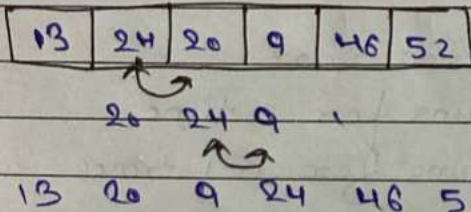 13 24 20 9 46 52
20 24 9
13 20 9 24 46 5